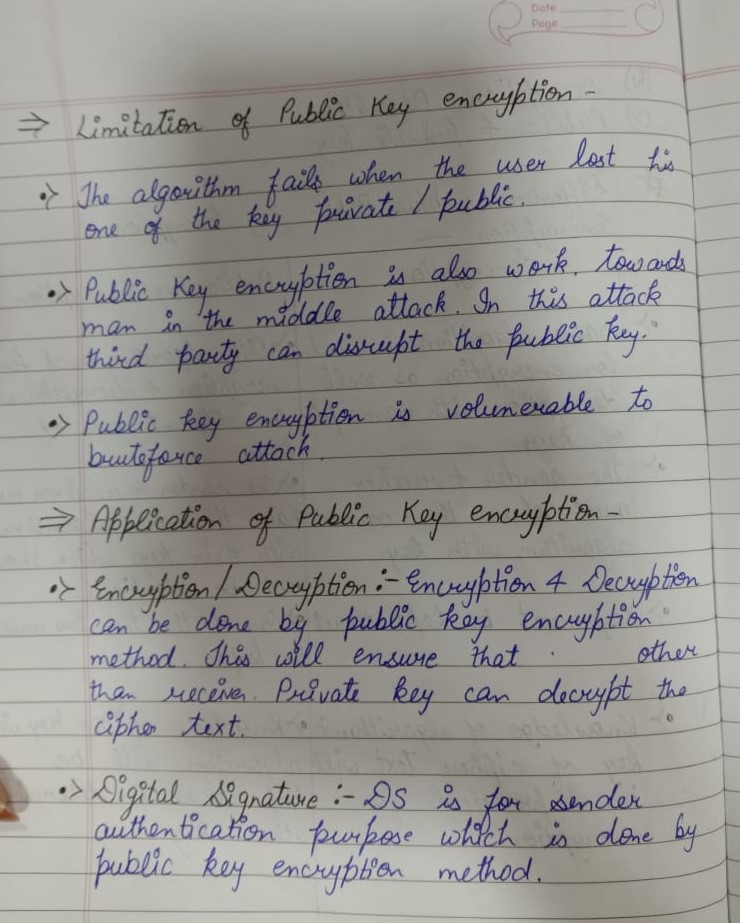 Date
Page
⇒ Limitation of Public Key encryption -
•> The algorithm fails when the user lost his
one of the key private / public.
•> Public Key encryption is also work. towards
man in the middle attack. In this attack
third party can disrupt the public key.
•> Public key encryption is volunerable to
bruteforce attack.
⇒ Application of Public Key encryption -
•> Encryption / Decryption :- Encryption & Decryption
can be done by public key encryption
method. This will ensure that other
than receiver. Private key can decrypt the
cipher text.
•> Digital Signature :- DS is for sender
authentication purpose which is done by
public key encryption method.